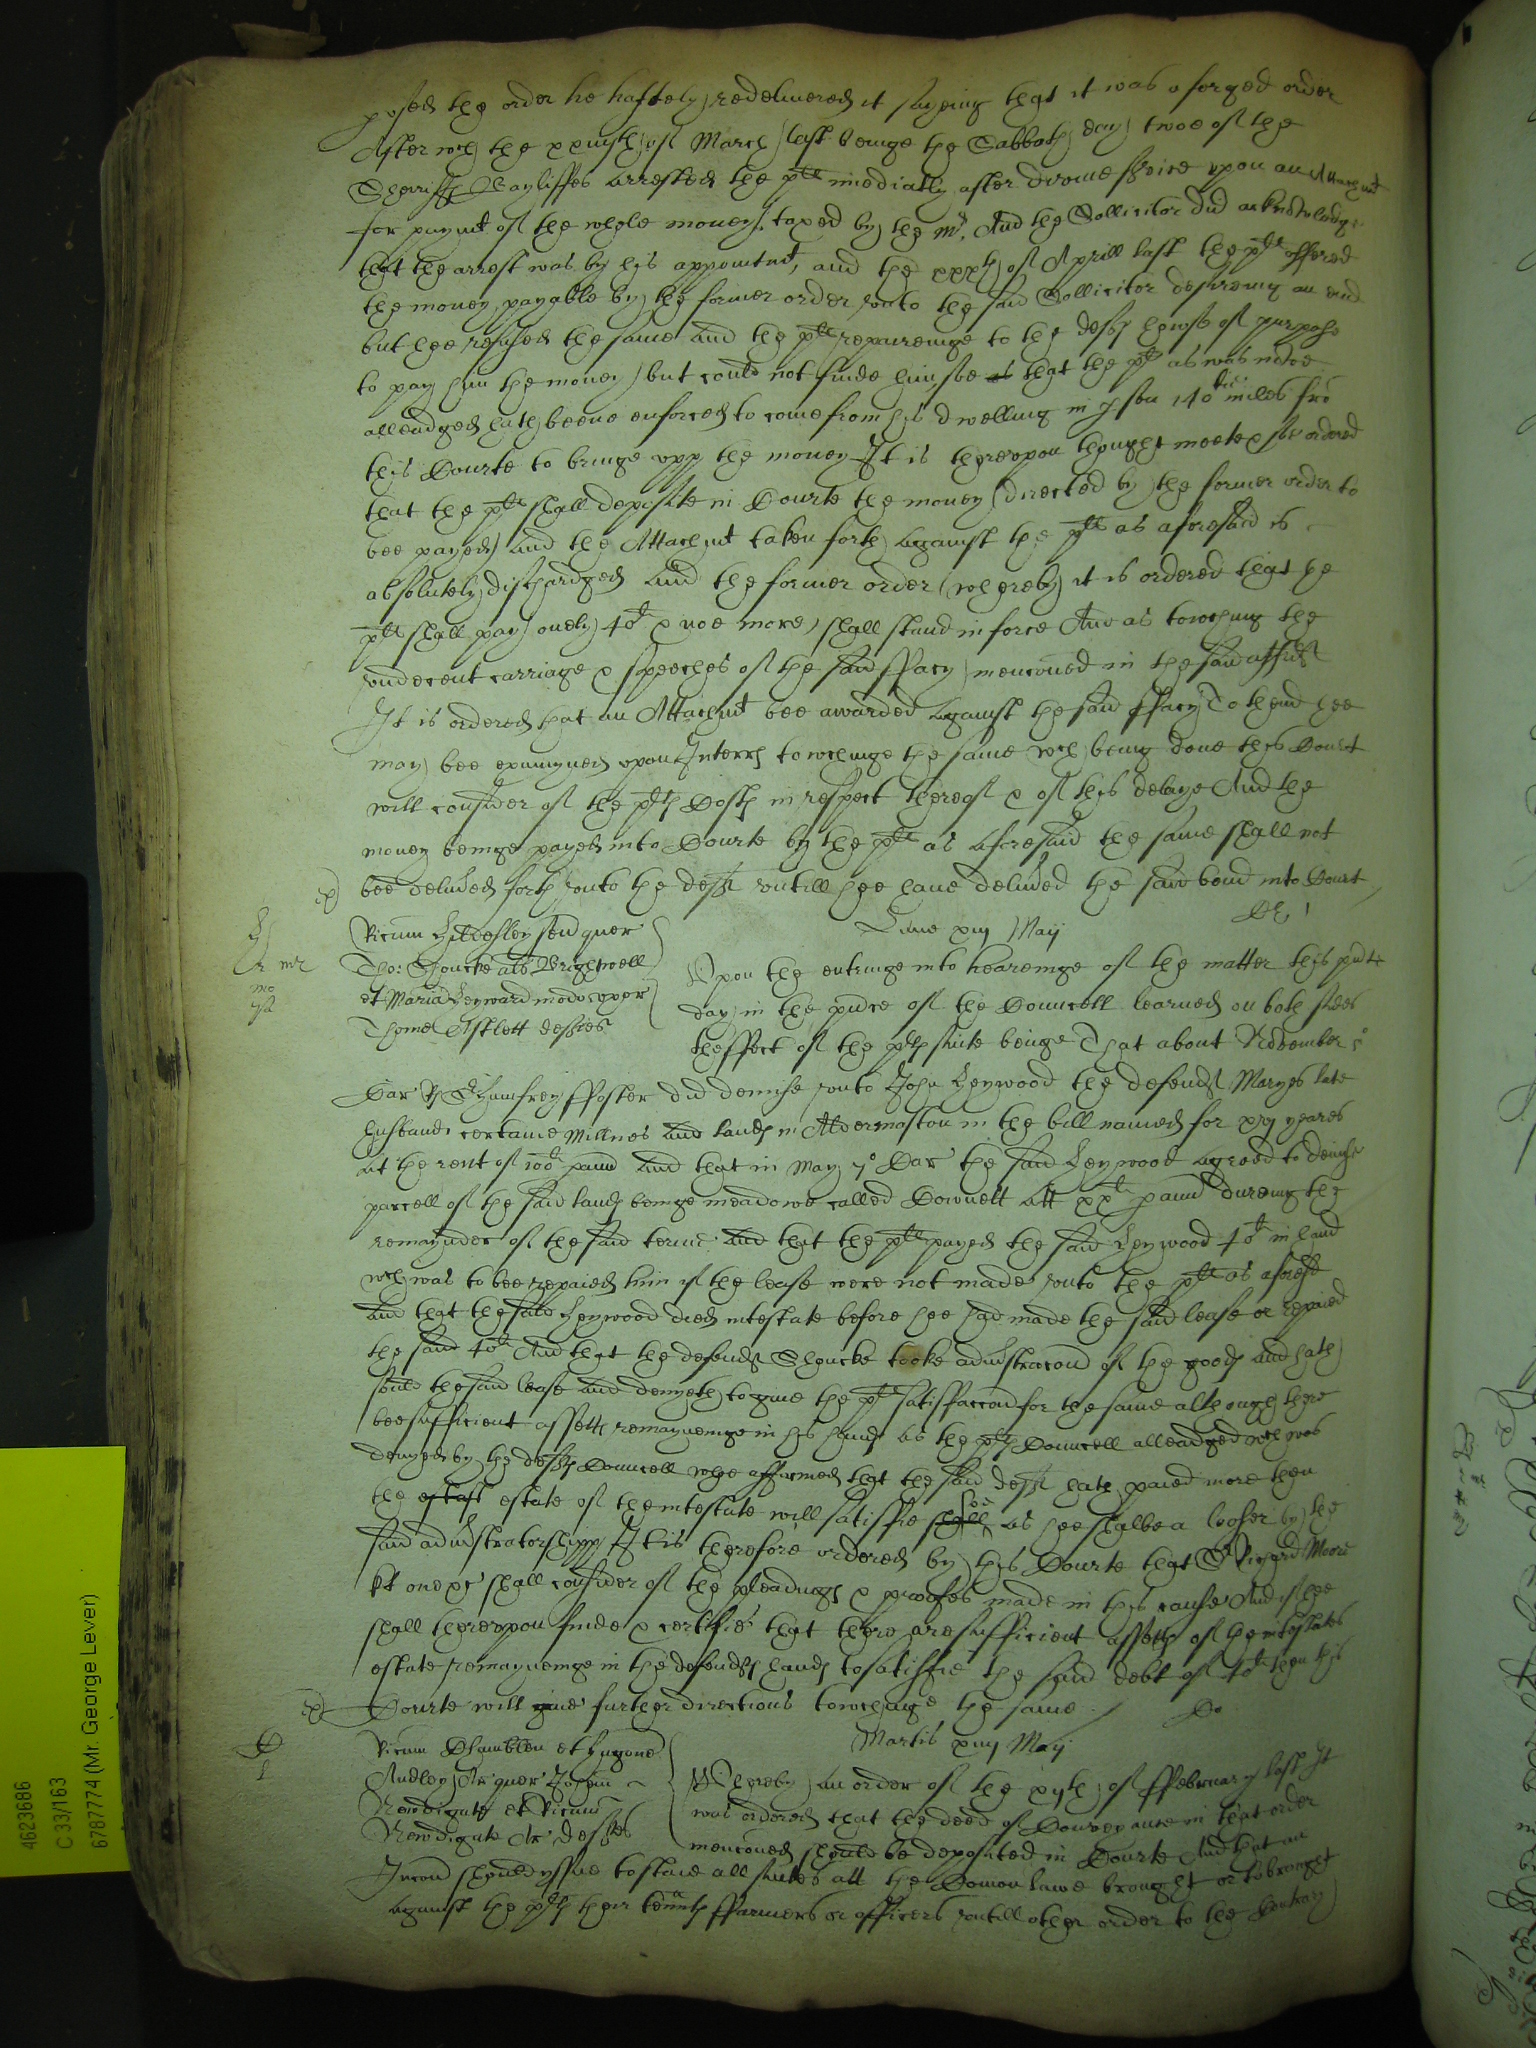 posed the order he hastely redelivered it sayeing that it was a forged order
After wch the xxviijth of March last beinge the Sabboth day twoe of the
Sheriffs Bayliffes arrested the plt imediatly after devine service upon an Attachmt
for paymt of the whole money taxed by the Mr, And the Sollicitor did acknowledge
that the arrest was by his appointmt, and the xxxth of Aprill last the plt offered
the money payable by the former order unto the said Sollicitor desireing an end
but hee refused the same And the plt repaireinge to the defts howse of purpose
to pay him the money but could not finde him, soe as that the plt as was nowe
alleadged hath beene enforced to come from his dwelling in 140 miles fro
this Courte to bringe upp the money It is thereupon thought meete & soe ordered
that the plt shall deposite in Courte the money directed by the former order to
bee payed And the Attachmt taken forth against the plt as aforesaid is
absolutely dischardged And the former order whereby it is ordered that the
plt shall pay onely 40li & noe more, shall stand in force And as touching the
undecent carriage & speeches of the said ffacy mencioned in the said affidt
It is ordered that an Attachmt bee awarded against the said ffacy To thend hee
may bee examyned upon Interrs touchinge the same wch being done this Court
will consider of the plts Costs in respect thereof & of this delaye And the
money beinge payed into Courte by the plt as aforesaid the same shall not
bee delivered forth unto the deft untill hee have delivered the said bond into Court
Lune xiij Maij
Ricum sen quer
Tho: Shoucke als Brightwell
et Maria Heyward modo uxor
Thome Astlett deftes
Upon the entringe into heareinge of the matter this pnte
day in the pnce of the Councell learned on both sides
theffect of the plts suite beinge That about November 5o
Car Sr Humfrey ffoster did demise unto John Heywood the defendt Maryes late
husband certaine Millnes and lands in Aldermaston in the bill named for xxj yeares
at the rent of 100li p annu And that in May 7o Car the said Heywood agreed to demise
parcell of the said lands beinge meadowe called Cownett att xxli p annu dureing the
remaynder of the said terme And that the plt payed the said Heywood 40li in hand
wch was to bee repaied him if the lease were not made unto the plt as aforesd
And that the said Heywood died intestate before hee had made the said lease or repaied
the said 40li And that the defendt Shoucke tooke administracon of the goods and hath
sould the said lease and denyeth to give the plt satisfaccon for the same although there
bee sufficient assetts remayneinge in his hands as the plts Councell alleadged wch was
denyed by the defts Councell whoe affirmed that the said deft hath paied more then
the estate of the intestate will satisfie soe as hee shalbe a looser by the
said administratorshipp It is therefore ordered by this Courte that Sr Richard Moore
kt one &c shall consider of the pleadings & proofes made in this cause And if hee
shall thereupon finde & certifie that there are sufficient assetts of the intestates
estate remayneinge in the defendts hands to satisfie the said debt of 40li then this
Courte will give further directions touchinge the same
Martis xiiij Maij
Ricum Chamblen et Hugone
Audley Ar quer Johem
Newdigate et Ricum
Newdigate Ar deftes
Whereby an order of the xvth of ffebruary last It
was ordered that the deed of Conveyance in that order
mencioned should be deposited in Courte And that an
Iniuncon should yssue to staie all suites att the Comon lawe brought or to be brought
against the plts their tennts ffarmers or officers untill other order to the contrary
4623686
C 33/163
6787774 (Mr. George Lever)